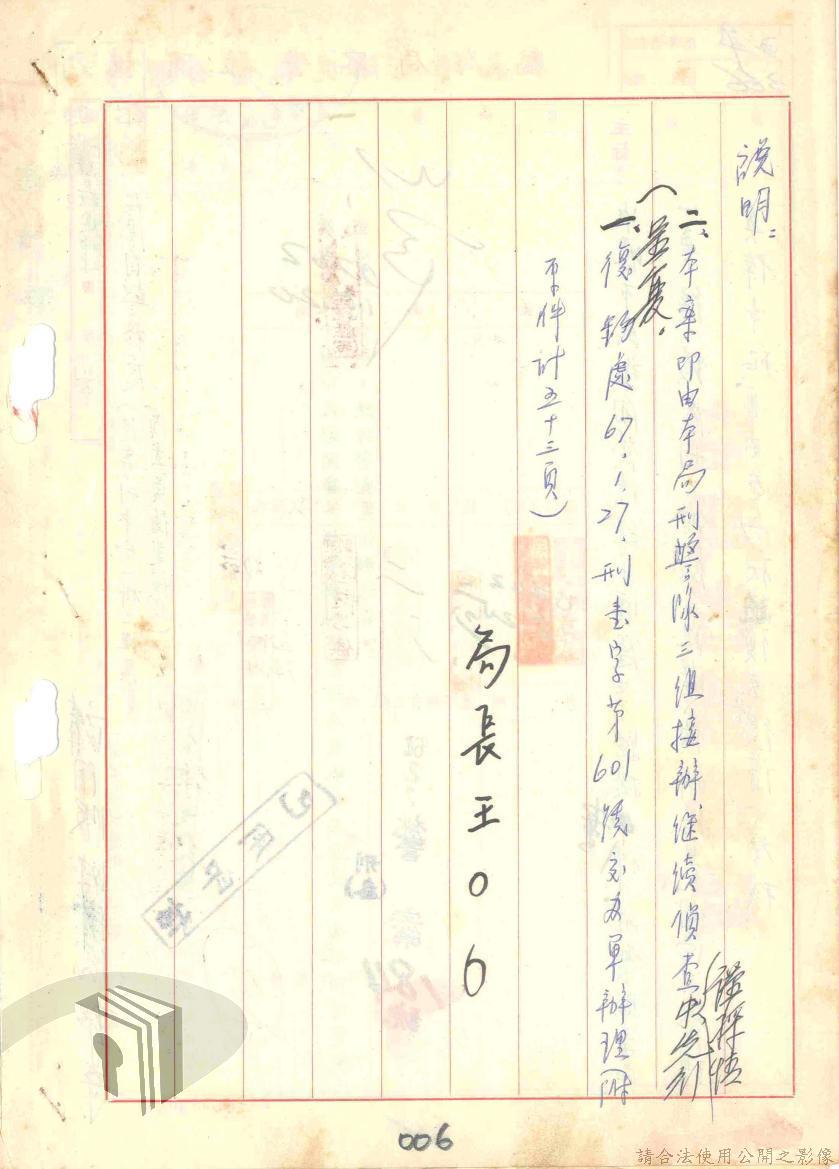 說明：
二、本案即由本局刑警隊三組接辦、繼續偵查中
呈覆。
一、復鈞處67.1.27.刑書字第601號交办單辦理(附
原件計五十三頁)
局長王006
006
請合法使用公開之影像